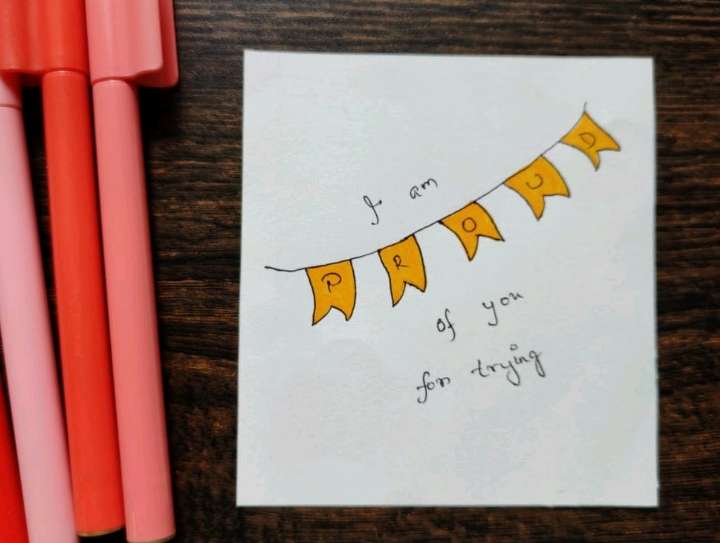 I am
PROUD
of you
for trying